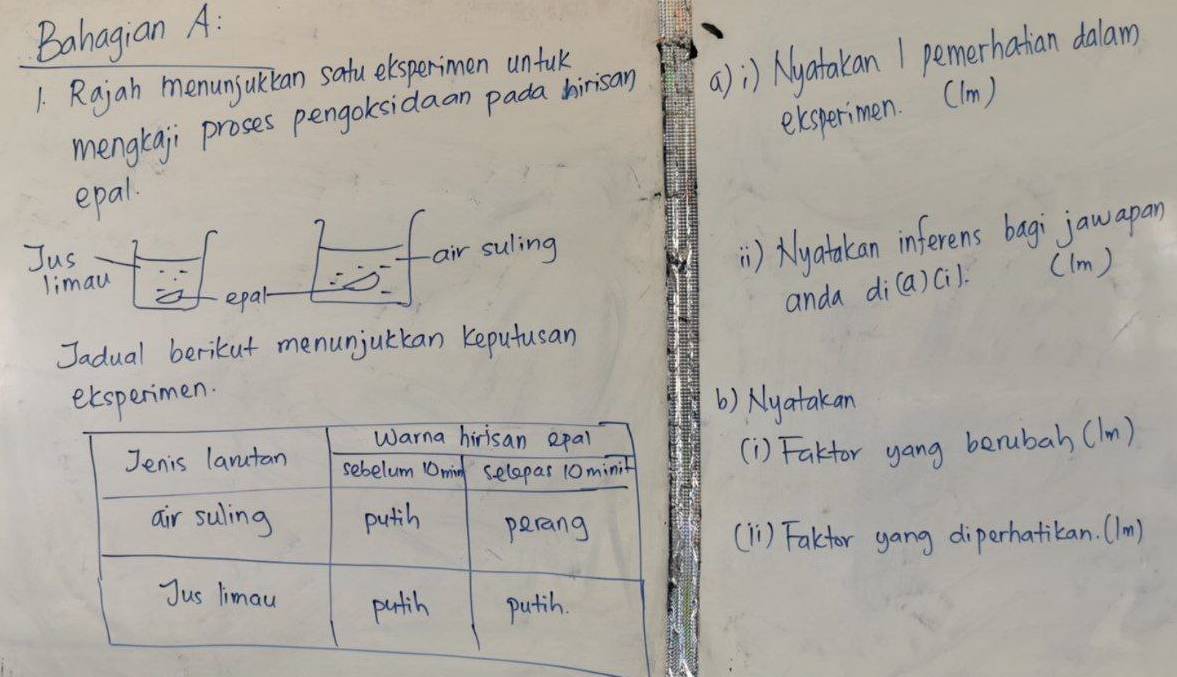 Bahagian A:
1. Rajah menunjukkan satu eksperimen untuk
mengkaji proses pengoksidaan pada hirisan
epal.
Jus
limau
epal
air suling
Jadual berikut menunjukkan keputusan
eksperimen.
Jenis larutan
Warna hirisan epal
sebelum 10 min
selepas 10 minit
air suling
putih
perang
Jus limau
putih
putih.
a) i) Nyatakan 1 pemerhatian dalam
eksperimen. (1m)
ii) Nyatakan inferens bagi jawapan
anda di (a)(i). (1m)
b) Nyatakan
(i) Faktor yang berubah (1m)
(ii) Faktor yang diperhatikan. (1m)